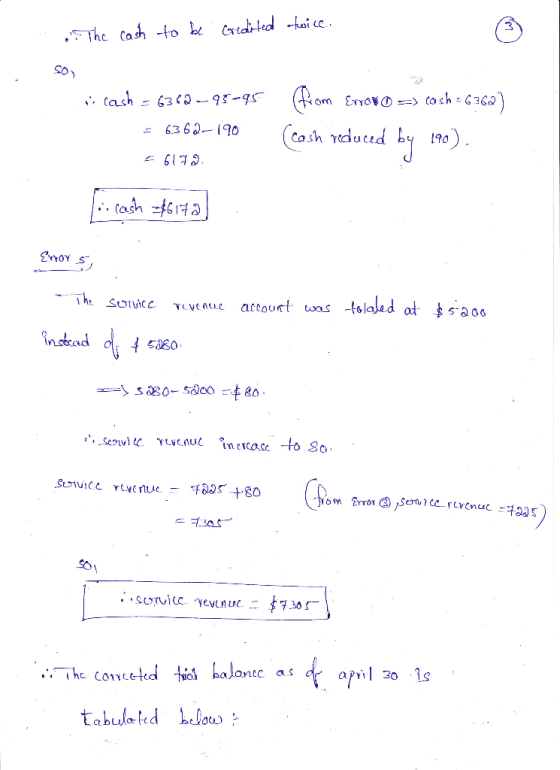 ∴ The cash to be credited twice.
③
so,
∴ cash = 6362 - 95 - 95 (from Error ① => cash = 6362)
= 6362 - 190 (cash reduced by 190).
= 6172.
∴ cash = $6172
Error 5,
The service revenue account was totaled at $5200
instead of $5280.
=> 5280 - 5200 = $80.
∴ service revenue increase to 80.
service revenue = 7225 + 80 (from Error ③, service revenue = 7225)
= 7305
so,
∴ service revenue = $7305
∴ The corrected trial balance as of april 30 is
tabulated below :